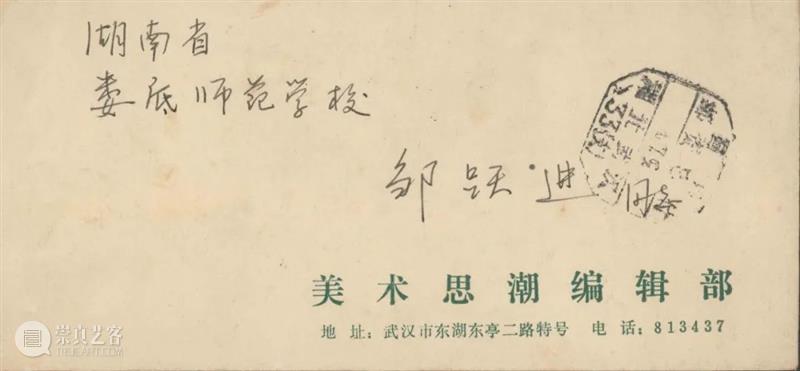 湖南省
娄底师范学校
邹跃进 同志
美术思潮编辑部
地 址：武汉市东湖东亭二路特号 电 话：813437
崇真艺客
TRUEART.COM